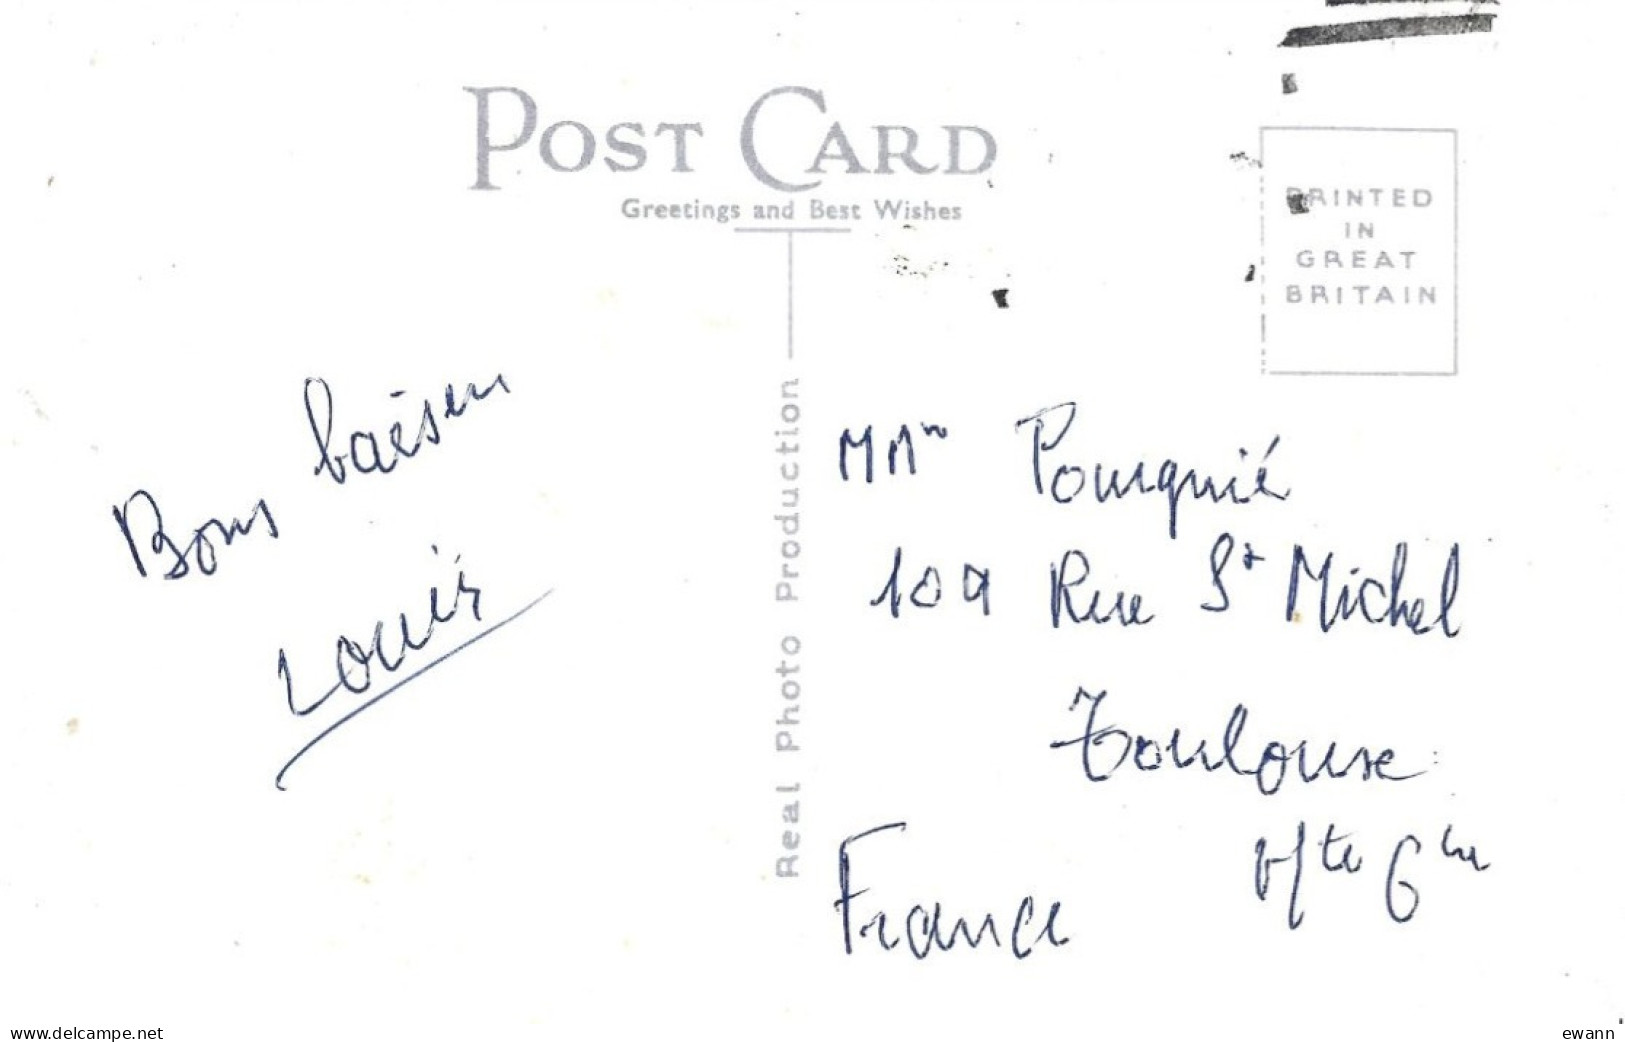 POST CARD
Greetings and Best Wishes
PRINTED
IN
GREAT
BRITAIN
Real Photo Production
Bons baisers
Louis
MMme Pourquié
109 Rue St Michel
Toulouse
H/te Gne
France
www.delcampe.net
ewann